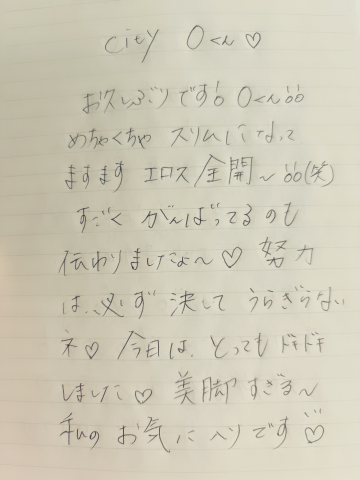 city Oくん♡
お久しぶりです!! Oくん!!
めちゃくちゃ スリムになって
ますます エロス 全開〜!!(笑)
すごく がんばってるのも
伝わりましたよ〜♡ 努力
は、必ず 決して うらぎらない
ネ♡ 今日は、とっても ドキドキ
しました♡ 美脚 すぎる〜
私の お気に入りです♡